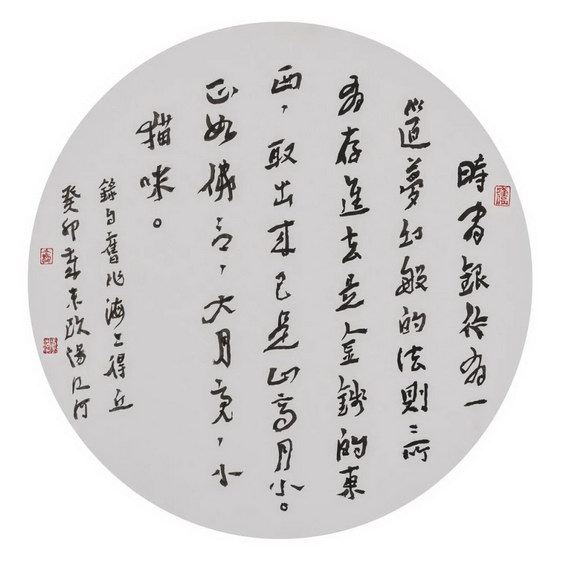 時間銀行有一
道夢幻般的法則：所
有存進去是金錢的東
西，取出來已是山高月小。
正如佛言，大月亮，小
貓咪。
錄自舊作海上得丘
癸卯歲末歐陽江河